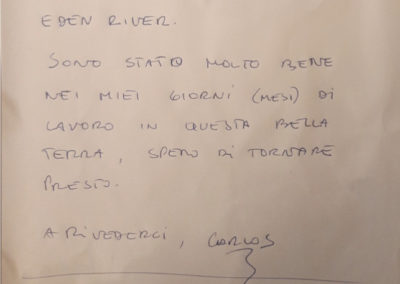 EDEN RIVER.
SONO STATO MOLTO BENE
NEI MIEI GIORNI (MESI) DI
LAVORO IN QUESTA BELLA
TERRA, SPERO DI TORNARE
PRESTO.
ARIVEDERCI, CARLOS